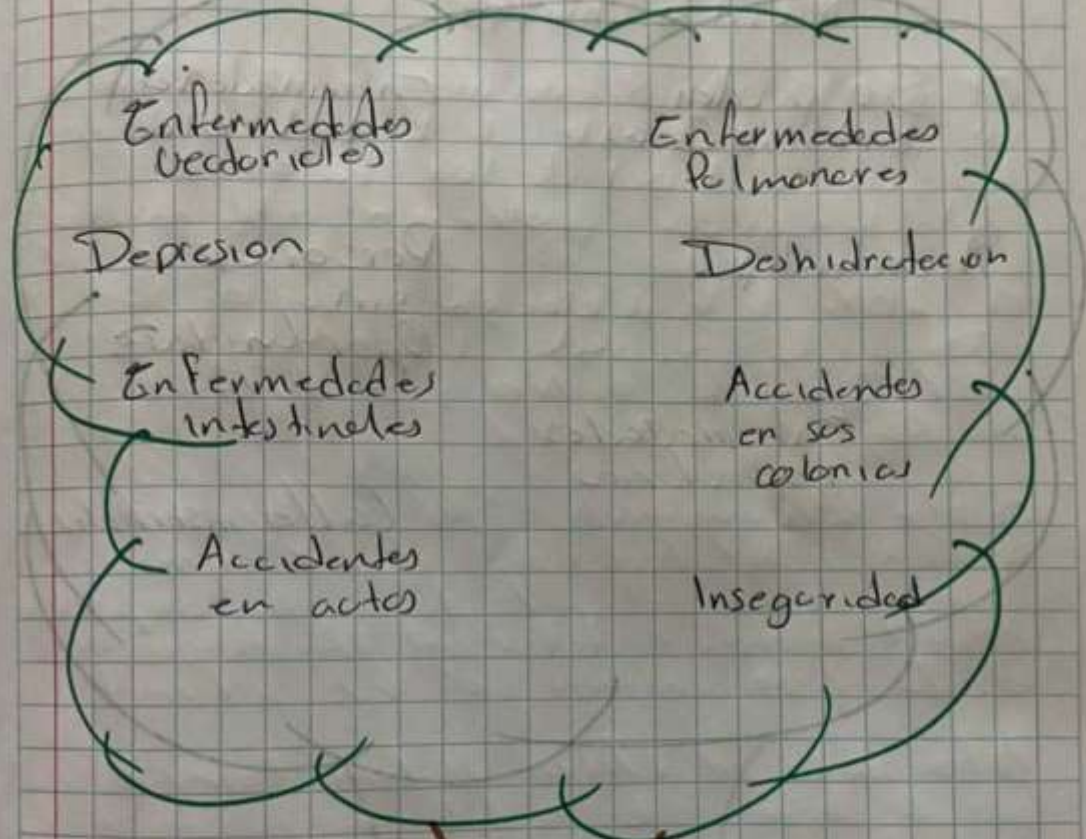 Enfermedades
vectoriales
Depresion
Enfermedades
intestinales
Accidentes
en autos
Enfermedades
Pulmonares
Deshidratacion
Accidentes
en sus
colonias
Inseguridad